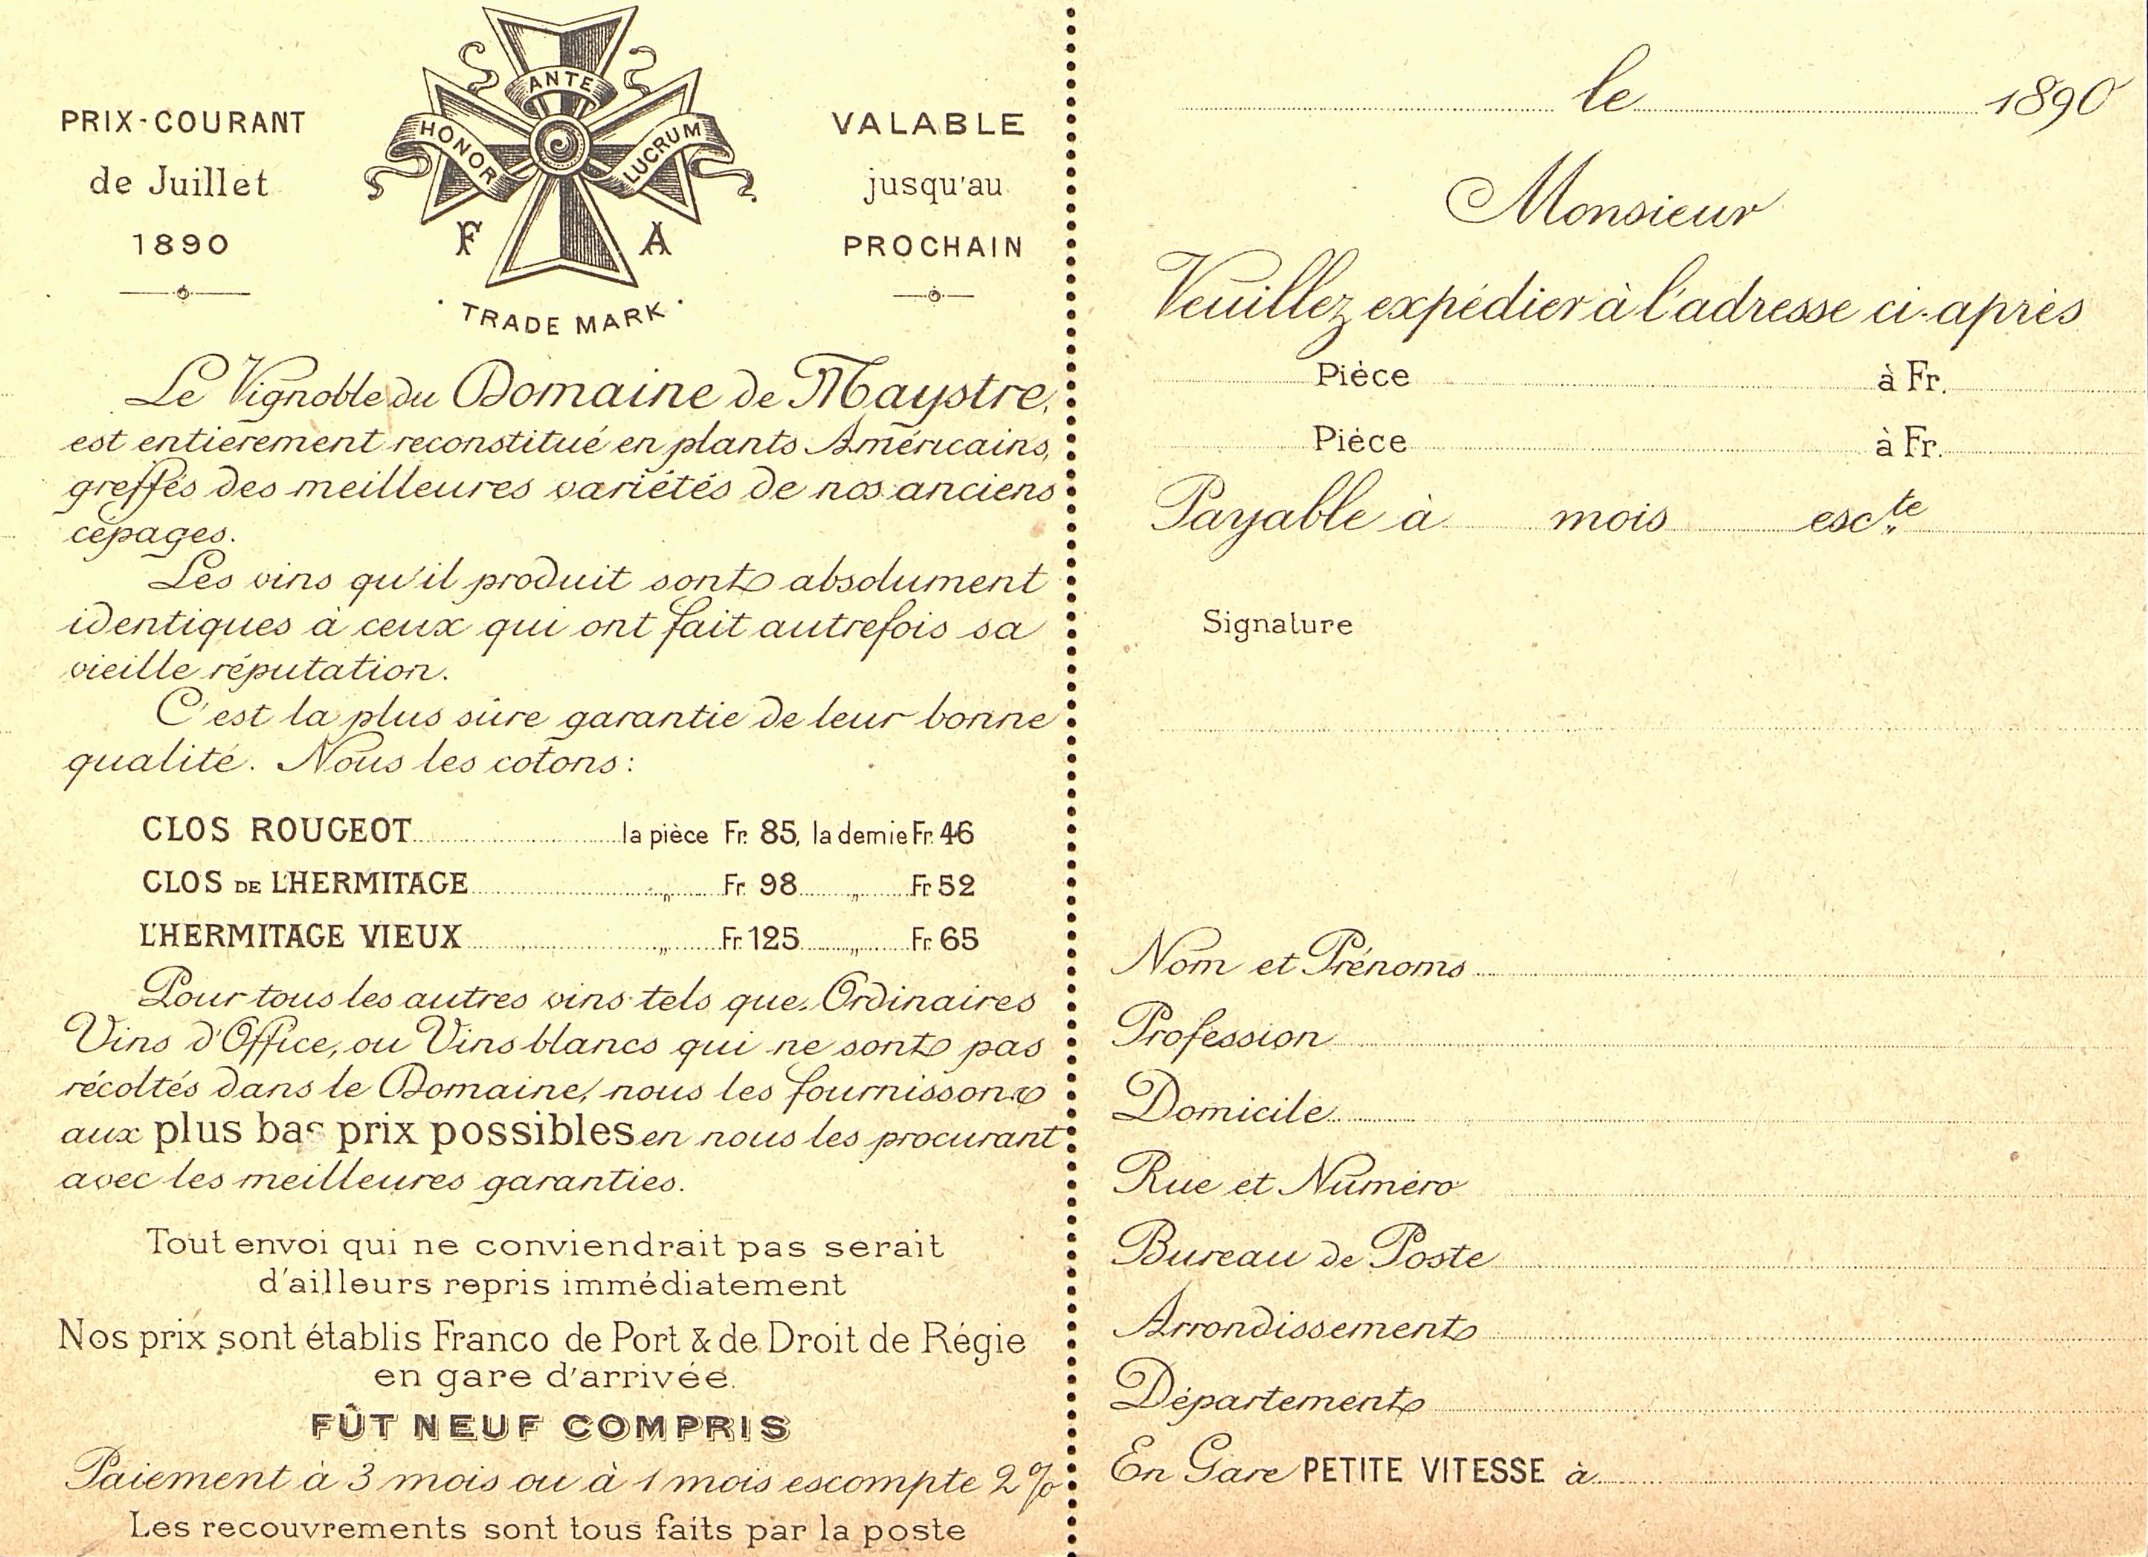 PRIX-COURANT
de Juillet
1890
HONOR ANTE LUCRUM
F A
· TRADE MARK ·
VALABLE
jusqu'au
PROCHAIN
Le Vignoble du Domaine de Maystre,
est entièrement reconstitué en plants Américains,
greffés des meilleures variétés de nos anciens
cépages.
Les vins qu'il produit sont absolument
identiques à ceux qui ont fait autrefois sa
vieille réputation.
C'est la plus sûre garantie de leur bonne
qualité. Nous les cotons:
CLOS ROUGEOT la pièce Fr. 85, la demie Fr. 46
CLOS DE L'HERMITAGE „ Fr. 98 „ Fr 52
L'HERMITAGE VIEUX „ Fr. 125 „ Fr. 65
Pour tous les autres vins tels que Ordinaires
Vins d'Office, ou Vins blancs qui ne sont pas
récoltés dans le Domaine, nous les fournissons
aux plus bas prix possibles en nous les procurant
avec les meilleures garanties.
Tout envoi qui ne conviendrait pas serait
d'ailleurs repris immédiatement
Nos prix sont établis Franco de Port & de Droit de Régie
en gare d'arrivée.
FÛT NEUF COMPRIS
Paiement à 3 mois ou à 1 mois escompte 2%
Les recouvrements sont tous faits par la poste
le 1890
Monsieur
Veuillez expédier à l'adresse ci-après
Pièce à Fr.
Pièce à Fr.
Payable à mois escte
Signature
Nom et Prénoms
Profession
Domicile
Rue et Numéro
Bureau de Poste
Arrondissement
Département
En Gare PETITE VITESSE à